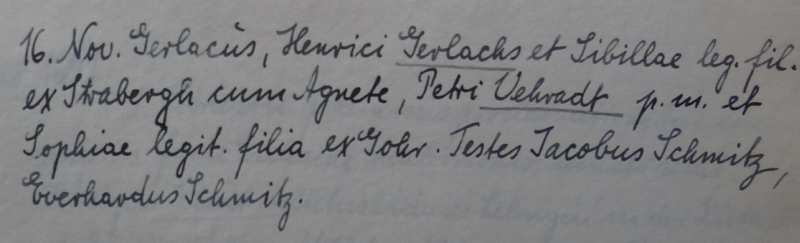 16. Nov. Gerlacus, Henrici Gerlachs et Sibillae leg. fil.
ex Strabergh cum Agnete, Petri Vehradt p. m. et
Sophiae legit. filia ex Gohr. Testes Jacobus Schmitz,
Everhardus Schmitz.